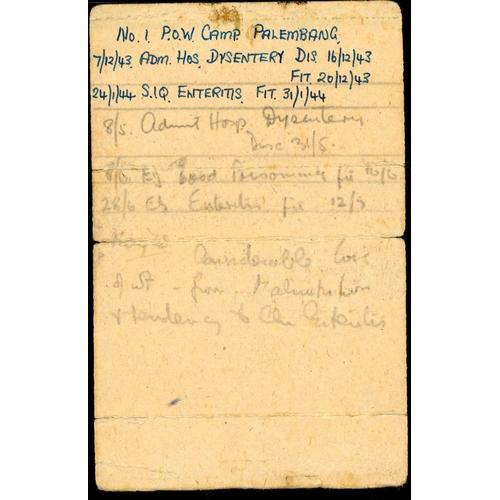 No. 1. P.O.W. CAMP PALEMBANG.
7/12/43. ADM. HOS. DYSENTERY DIS. 16/12/43
FIT. 20/12/43
24/1/44 S.I.Q. ENTERITIS. FIT. 31/1/44
8/5. Admit Hosp. Dysentery
Disc 31/5.
Food Poisoning fit 10/6
28/6 Enteritis fit 12/
Considerable loss
of wt - from Malnutrition
& tendency to Chr Enteritis